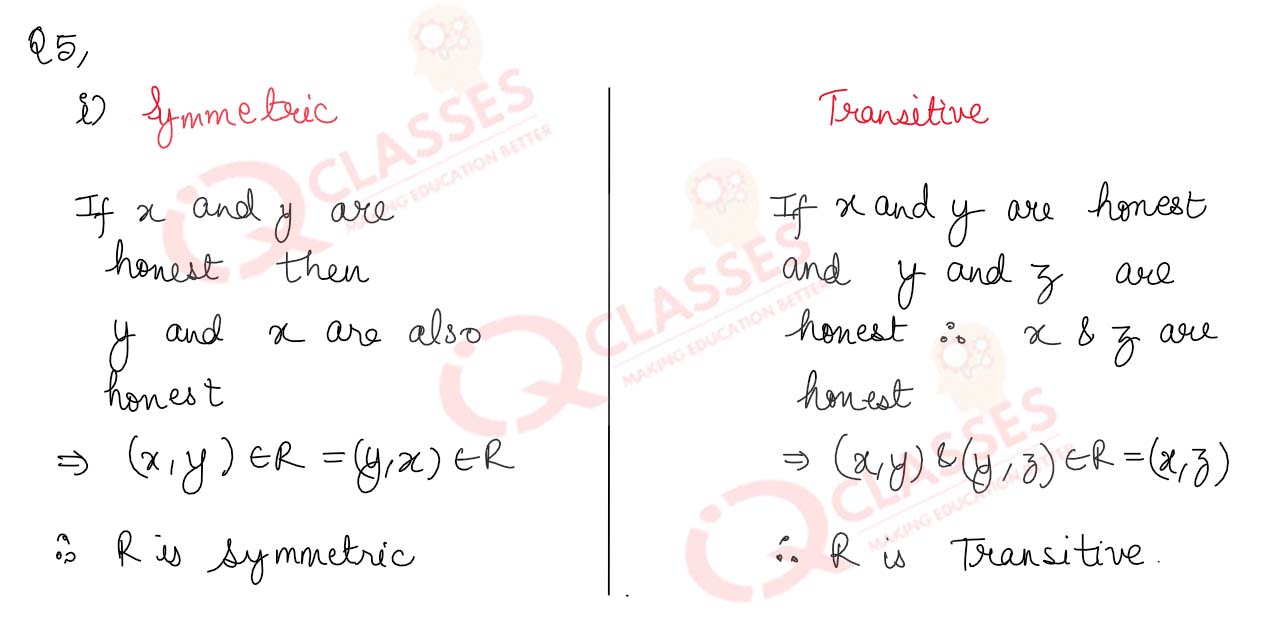 Q5,
i) Symmetric
If x and y are
honest then
y and x are also
honest
⇒ (x, y) ∈ R = (y, x) ∈ R
∴ R is symmetric
Transitive
If x and y are honest
and y and z are
honest ∴ x & z are
honest
⇒ (x, y) & (y, z) ∈ R = (x, z)
∴ R is Transitive.
IQ CLASSES
MAKING EDUCATION BETTER
IQ CLASSES
MAKING EDUCATION BETTER
IQ CLASSES
MAKING EDUCATION BETTER